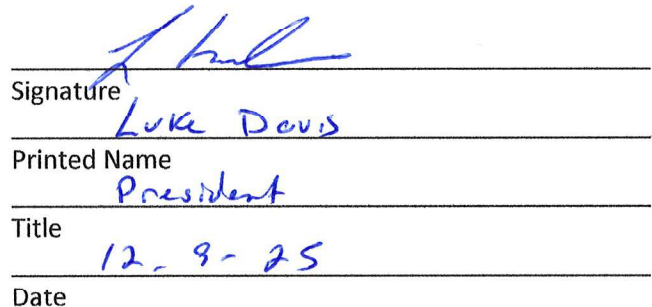 Signature
Luke Davis
Printed Name
President
Title
12-9-25
Date